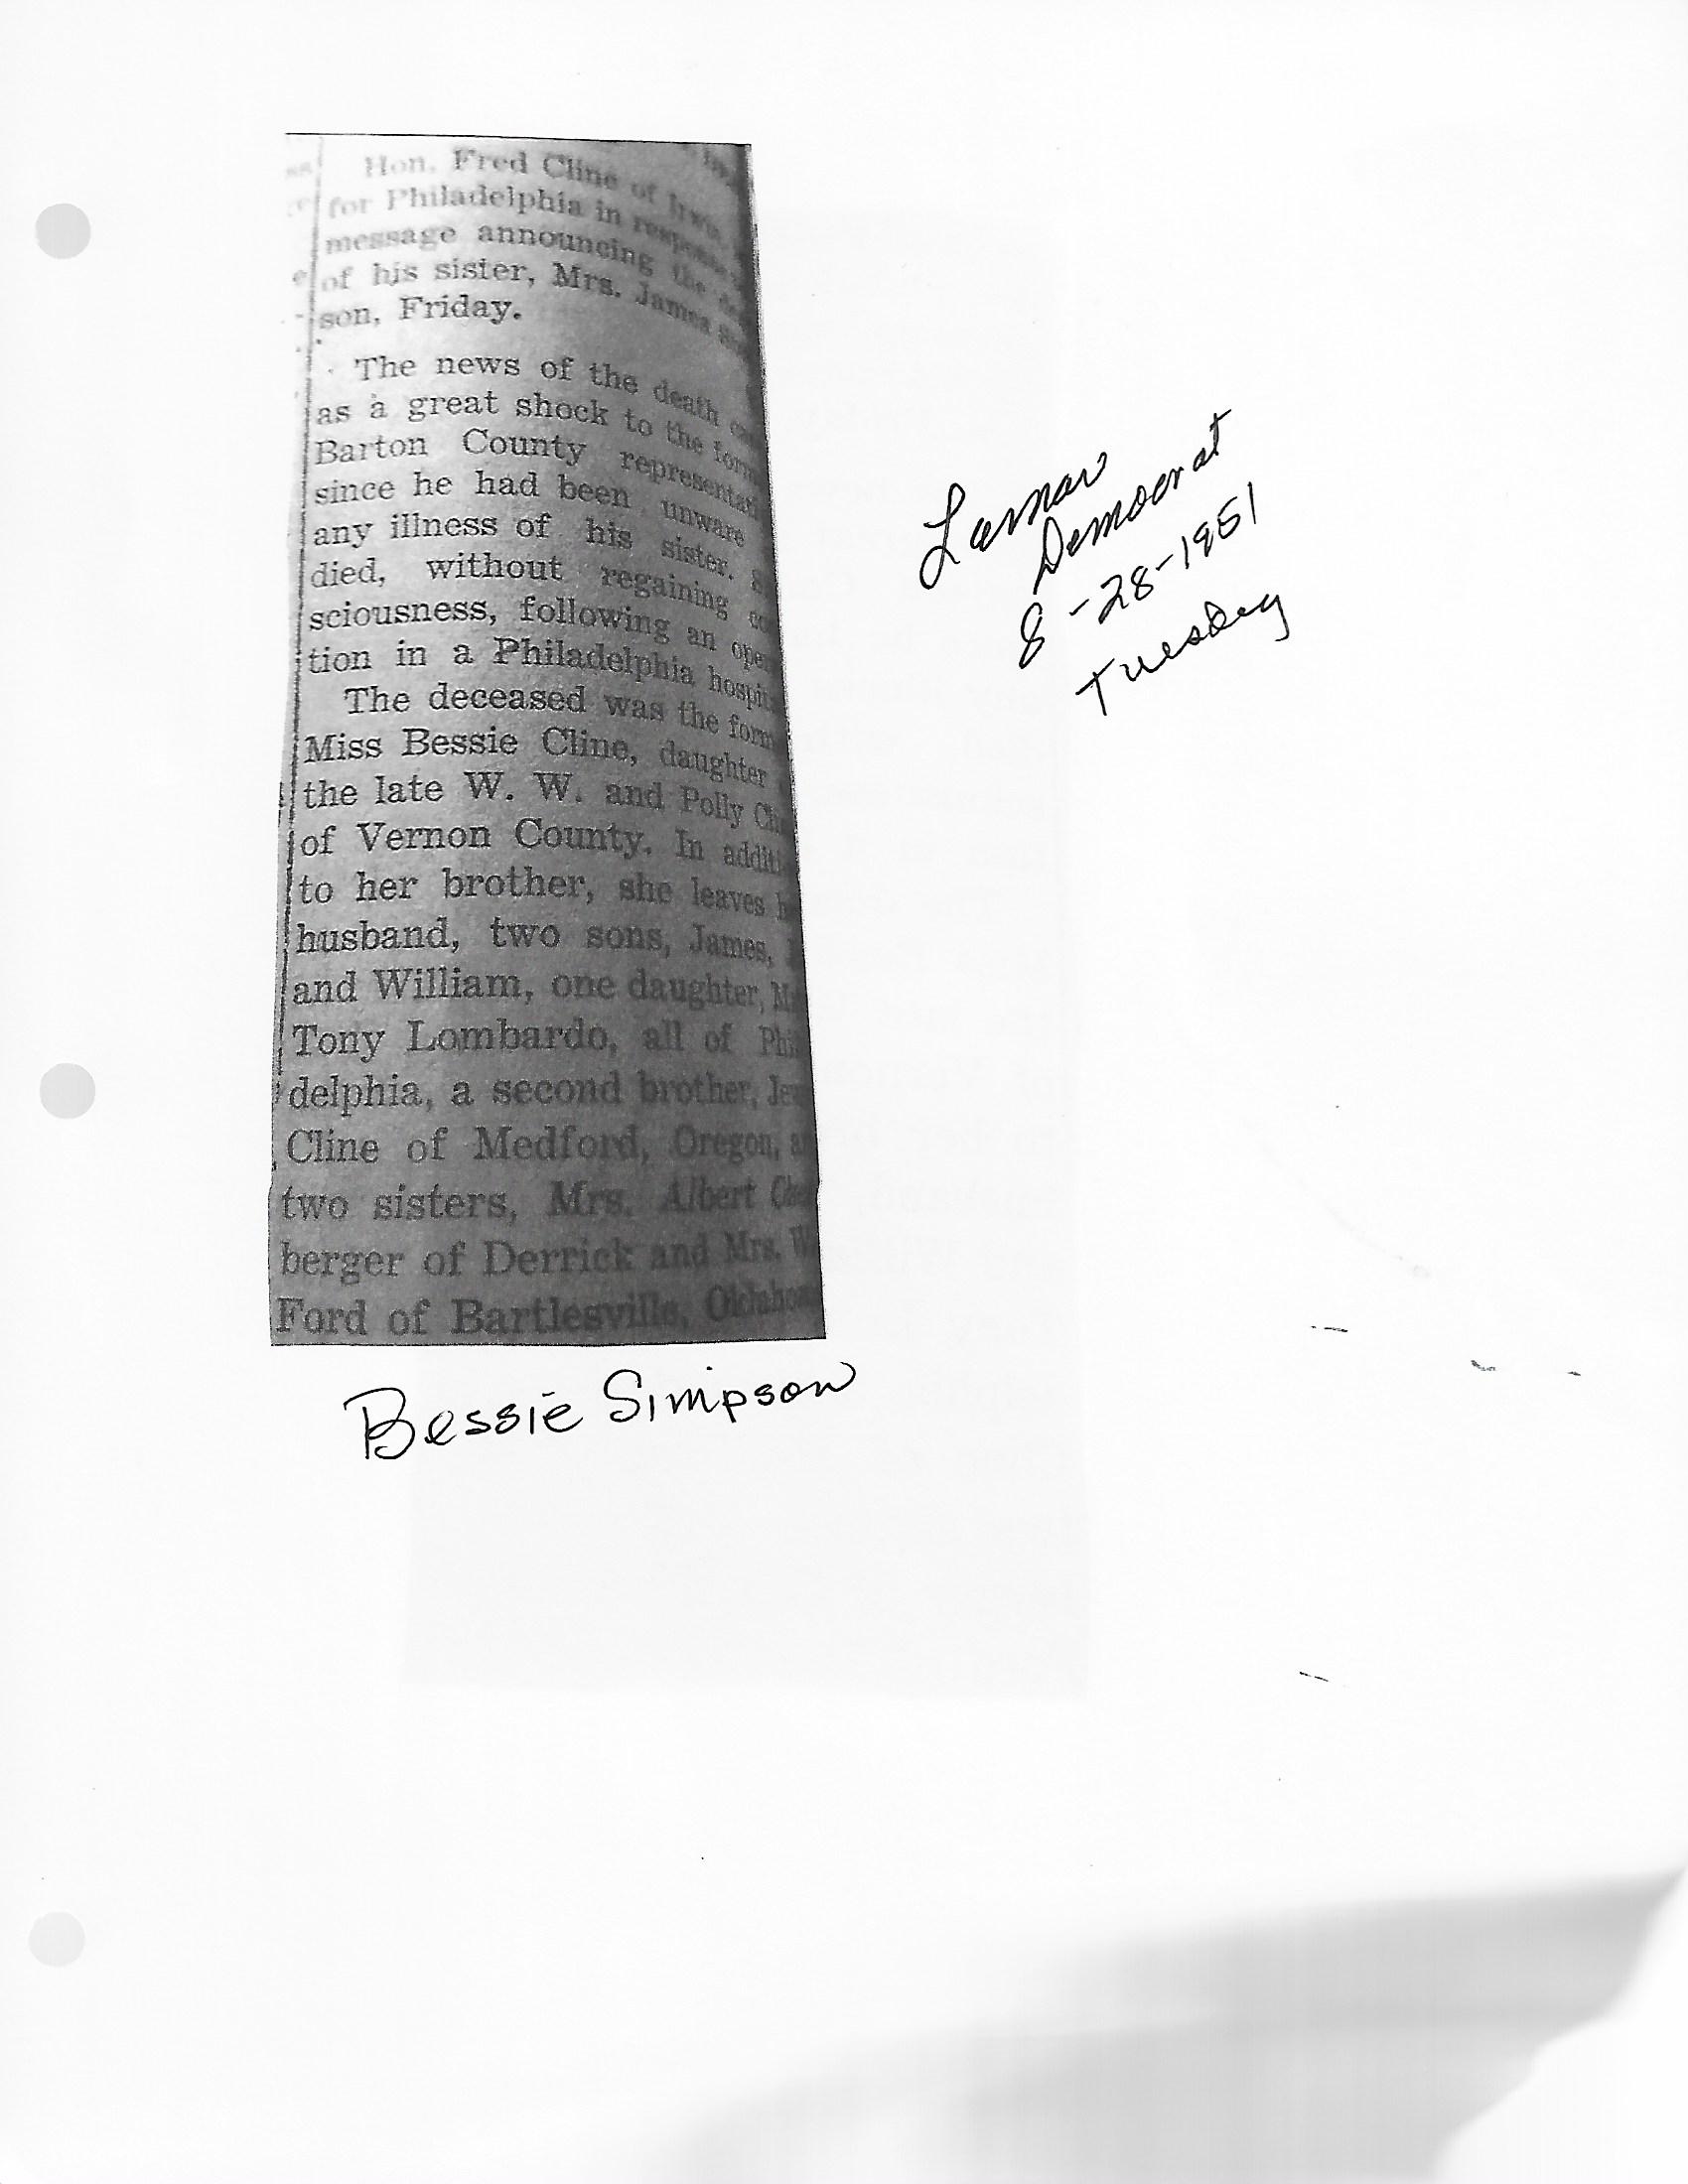 Hon. Fred Cline of Irwin
for Philadelphia in response
message announcing the
of his sister, Mrs. James
son, Friday.
The news of the death
as a great shock to the form
Barton County representati
since he had been unware
any illness of his sister.
died, without regaining co
sciousness, following an oper
tion in a Philadelphia hospi
The deceased was the form
Miss Bessie Cline, daughter
the late W. W. and Polly Cl
of Vernon County. In additi
to her brother, she leaves h
husband, two sons, James,
and William, one daughter, M
Tony Lombardo, all of Phi
delphia, a second brother, Je
Cline of Medford, Oregon, a
two sisters, Mrs. Albert
berger of Derrick and Mrs. W
Ford of Bartlesville, Oklaho
Bessie Simpson
Lamar
Democrat
8-28-1951
Tuesday